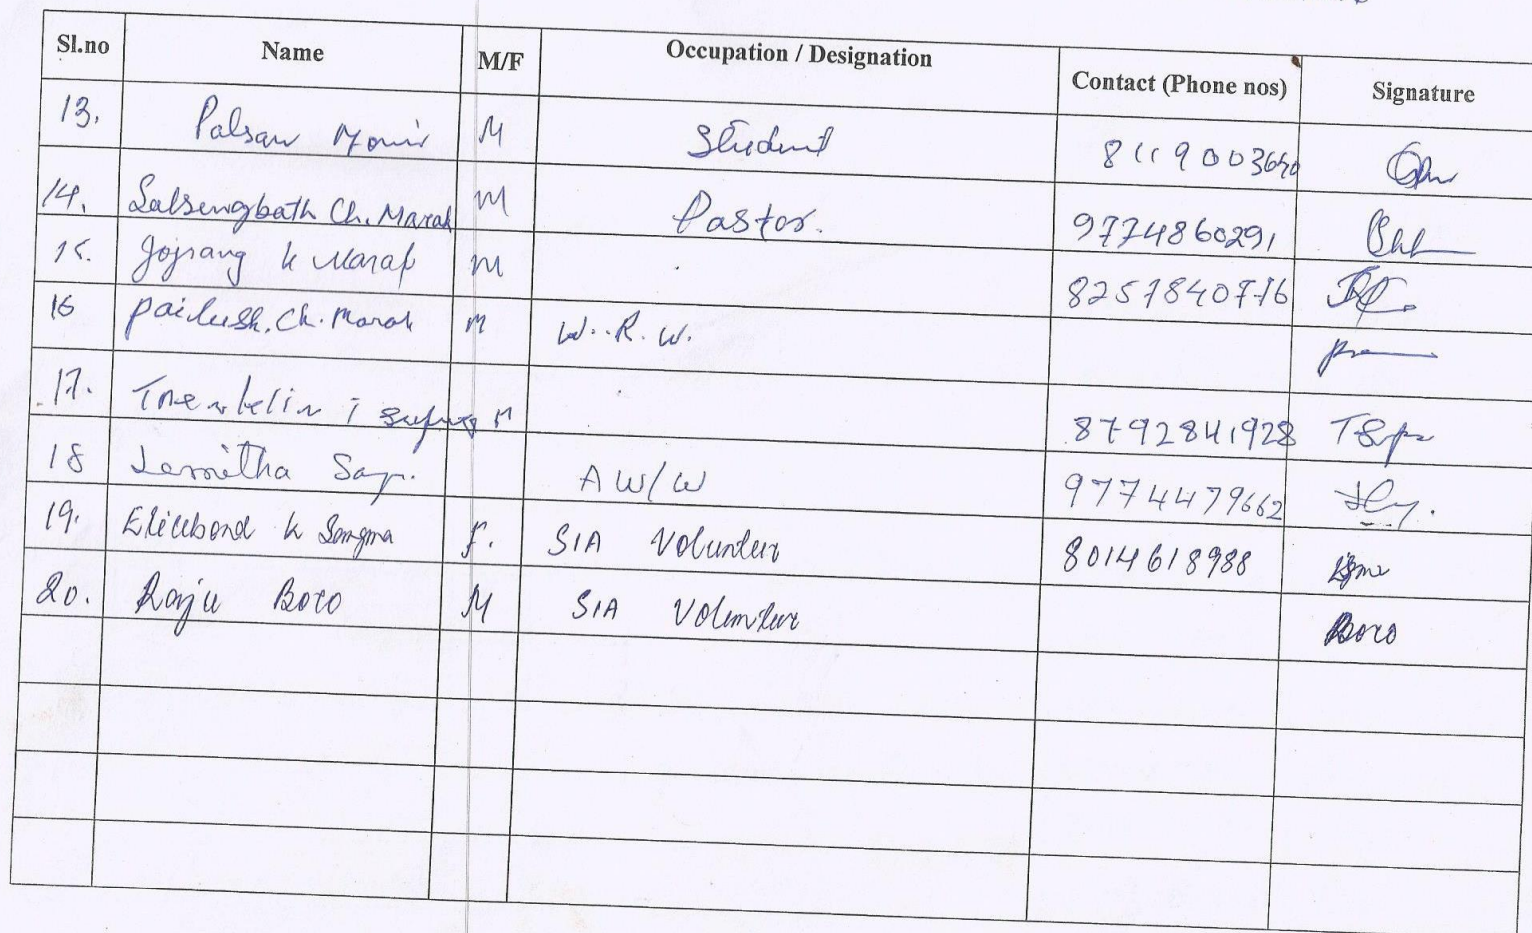 Sl.no Name M/F Occupation / Designation Contact (Phone nos) Signature
13. Palsan Momin M Student 8119003640
14. Salsengbath Ch. Marak M Pastor. 9774860291
15. Jojrang k Marak M 8257840776
16 pailush. Ch. Marak M W..R.W.
17. M 8792841928
18 AW/W 9774479662
19. k Sangma f. SIA Volunteer 8014618988
20. Raju Boro M SIA Volunteer Boro